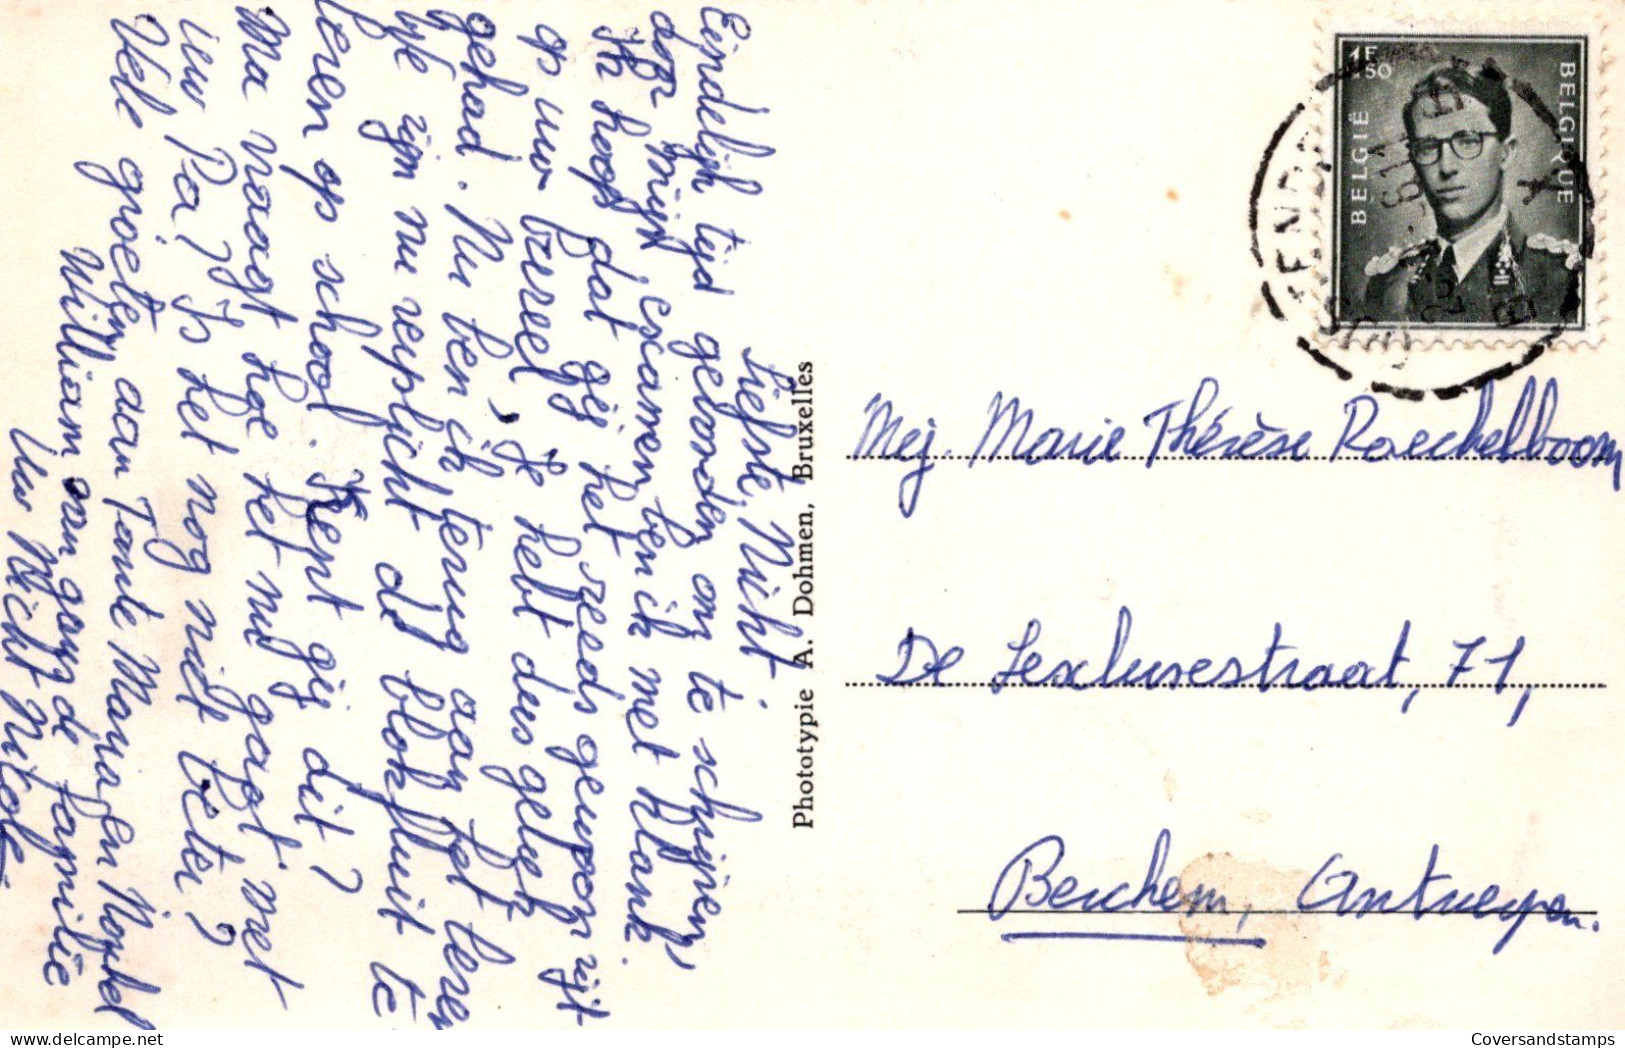 Liefste Nicht.
Eindelijk tijd gevonden om te schrijven,
door mijn examen ben ik met klank.
Ik hoop dat gij het reeds gewoon zijt
op uw bureel, Je hebt dus geluk
gehad. Nu ben ik terug aan het leren
We zijn nu verplicht de blokfluit te
leren op school. Kent gij dit?
Ma vraagt hoe het nu gaat met
uw Pa? Is het nog niet beter?
Vele groeten aan Tante Maria en Norbel
William van gans de familie
Uw Nicht Nicole
Phototypie A. Dohmen, Bruxelles
1F50
BELGIË
BELGIQUE
Mej. Marie Thérèse Raeckelboom
De 71,
Berchem, Antwerpen.
Coversandstamps